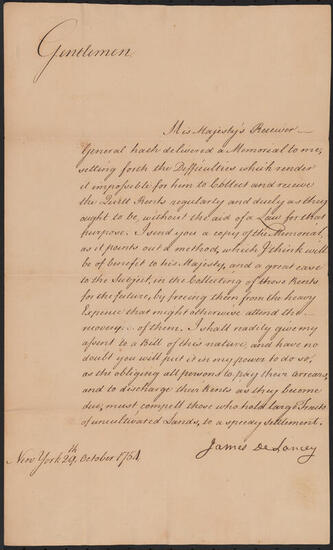 Gentlemen
His Majesty's Receiver
General hath delivered a Memorial to me,
setting forth the Difficulties which render
it impossible for him to Collect and receive
the Quitt Rents regularly and duely as they
ought to be, without the aid of a Law for that
purpose. I send you a copy of the Memorial,
as it points out a method, which I think will
be of benefit to his Majesty, and a great ease
to the Subject, in the Collecting of those Rents
for the future, by freeing them from the heavy
Expence that might otherwise attend the
recovery of them. I shall readily give my
assent to a Bill of this nature, and have no
doubt you will put it in my power to do so,
as the obliging all persons to pay their Arrears,
and to discharge their Rents as they become
due, must compell those who hold large Tracts
of uncultivated Lands, to a speedy settlement.
James De Lancey
New York 29th October 1754